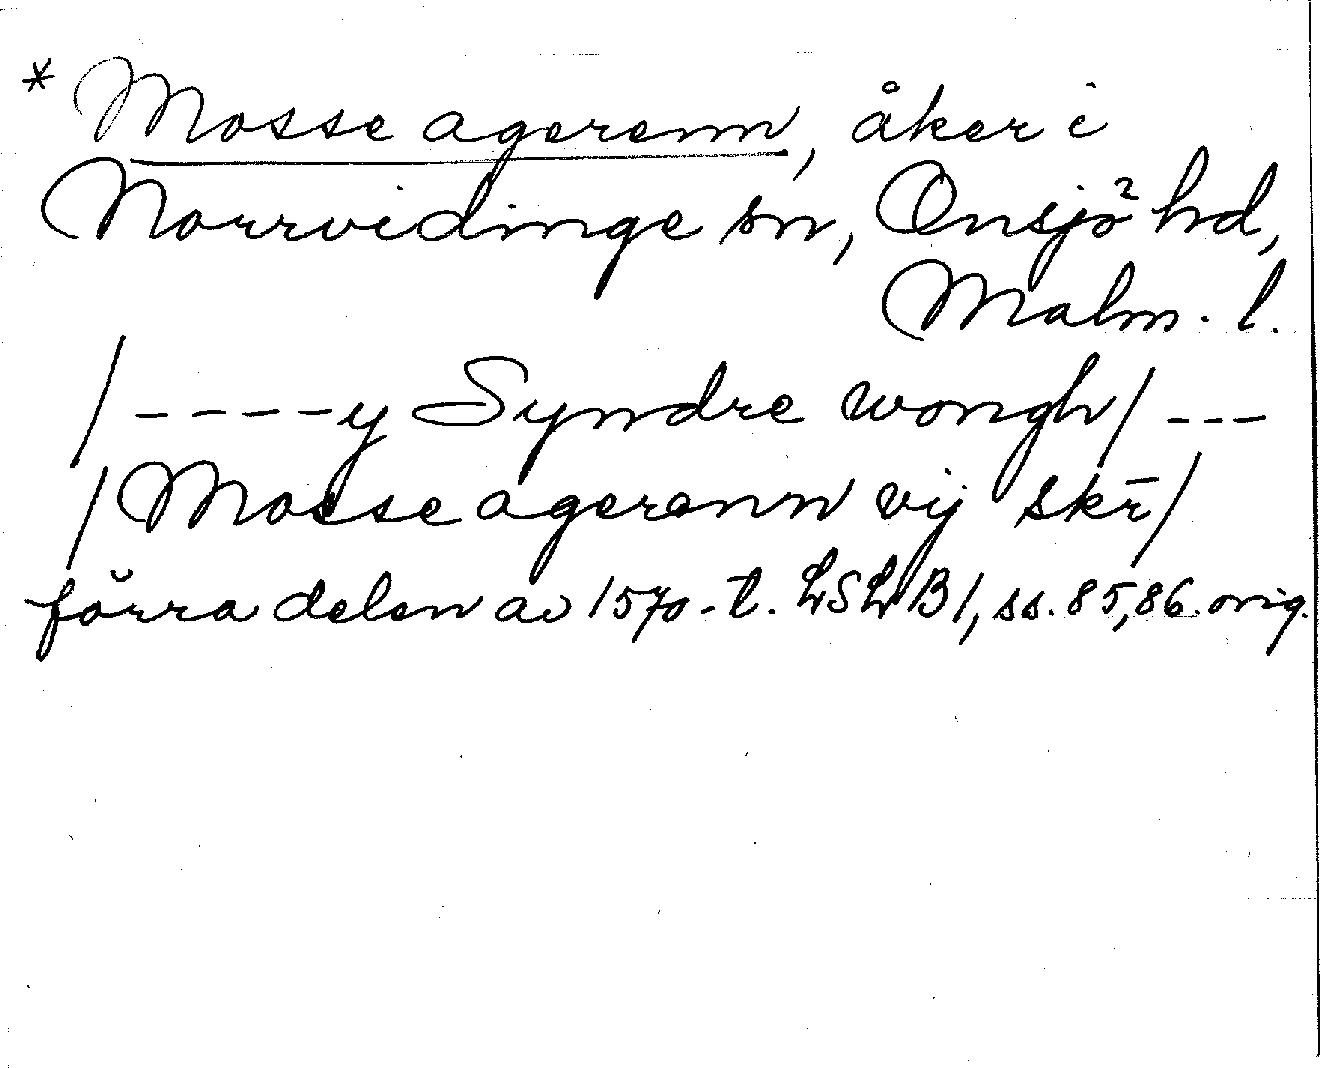 * Mosse agerenn, åker i
Norrvidinge sn, Onsjö hd,
Malm. l.
/----y Syndre wongh/---
/Mosse agerenn vij skr̄/
förra delen av 1570-t. LSLB1, ss. 85, 86. orig.